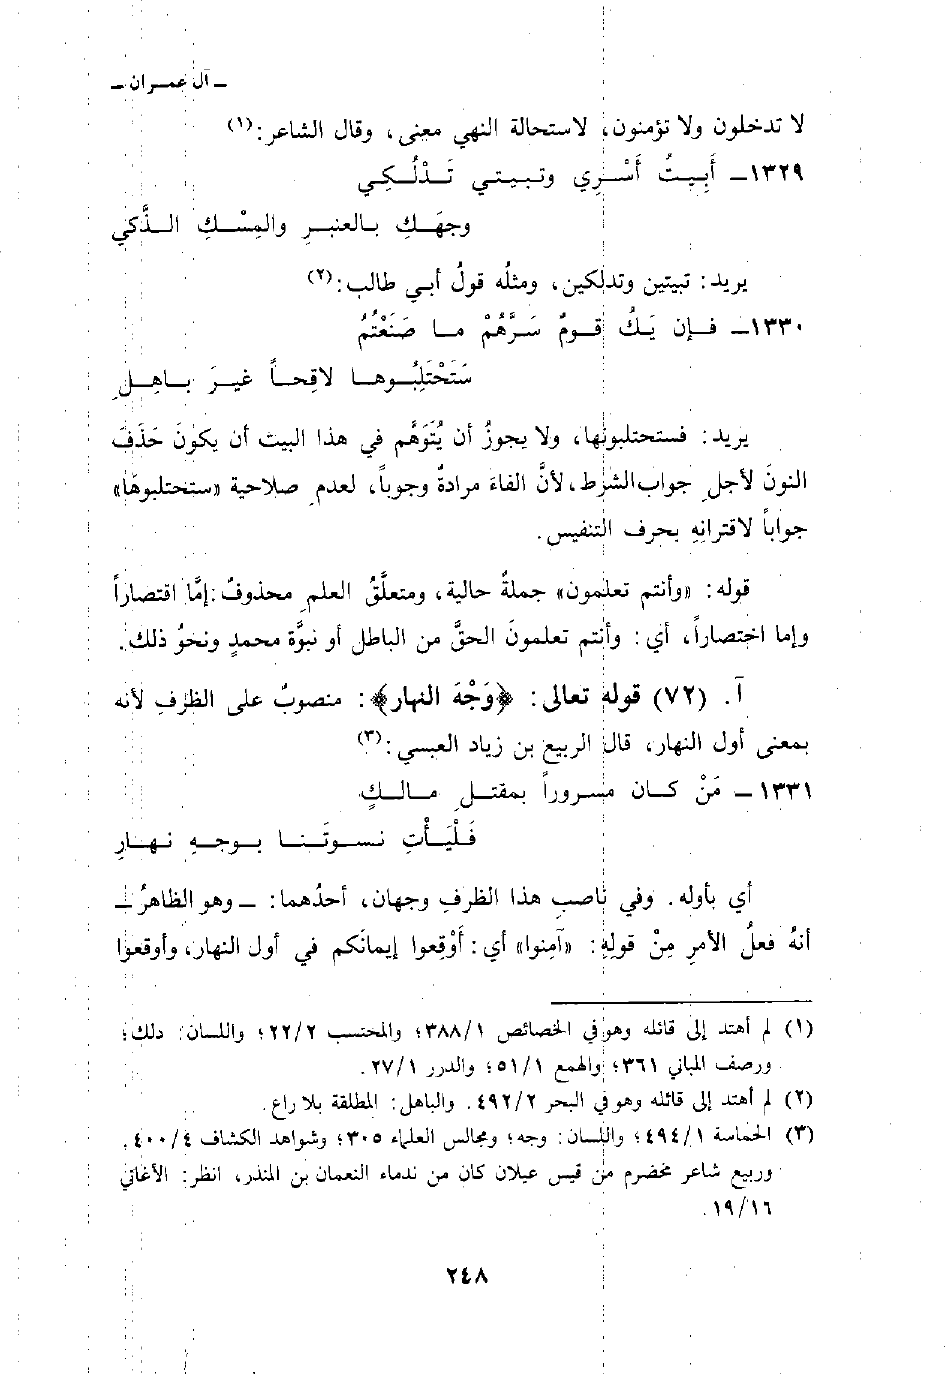 ـ آل عمران ـ
لا تدخلون ولا تؤمنون، لاستحالة النهي معنى، وقال الشاعر:(١)
١٣٢٩ـ أَبِيتُ أَسْرِي وتبيتي تَدْلُكِي
وجهَكِ بالعنبرِ والمِسْكِ الذَّكي
يريد: تبيتين وتدلكين، ومثلُه قولُ أبي طالب:(٢)
١٣٣٠ـ فإن يَكُ قومٌ سَرَّهُمْ ما صَنَعْتُمُ
سَتَحْتَلِبُوها لاقِحاً غيرَ باهِلِ
يريد: فستحتلبونها، ولا يجوزُ أن يُتَوَهَّم في هذا البيت أن يكونَ حَذَفَ
النونَ لأجلِ جواب الشرط، لأنَّ الفاءَ مرادةٌ وجوباً، لعدمِ صلاحية «ستحتلبوها»
جواباً لاقترانِهِ بحرف التنفيس.
قوله: «وأنتم تعلمون» جملةٌ حالية، ومتعلَّقُ العلمِ محذوفٌ: إمَّا اقتصاراً
وإما اختصاراً، أي: وأنتم تعلمونَ الحقَّ من الباطل أو نبوَّة محمدٍ ونحوُ ذلك.
آ. (٧٢) قوله تعالى: ﴿وَجْهَ النهار﴾: منصوبٌ على الظرفِ لأنه
بمعنى أول النهار، قال الربيع بن زياد العبسي:(٣)
١٣٣١ـ مَنْ كان مسروراً بمقتلِ مالكٍ
فَلْيَأْتِ نسوتَنا بوجهِ نهارِ
أي بأوله. وفي ناصبِ هذا الظرفِ وجهان، أحدُهما: ـ وهو الظاهرُ ـ
أنه فعلُ الأمرِ مِنْ قولِهِ: «آمِنوا» أي: أَوْقِعوا إيمانَكم في أول النهار، وأوقعوا
(١) لم أهتد إلى قائله وهو في الخصائص ٣٨٨/١؛ والمحتسب ٢٢/٢؛ واللسان: دلك؛
ورصف المباني ٣٦١؛ والهمع ٥١/١؛ والدرر ٢٧/١.
(٢) لم أهتد إلى قائله وهو في البحر ٤٩٢/٢. والباهل: المطلقة بلا راع.
(٣) الحماسة ٤٩٤/١؛ واللسان: وجه؛ ومجالس العلماء ٣٠٥؛ وشواهد الكشاف ٤٠٠/٤.
وربيع شاعر مخضرم من قيس عيلان كان من ندماء النعمان بن المنذر، انظر: الأغاني
١٩/١٦.
٢٤٨